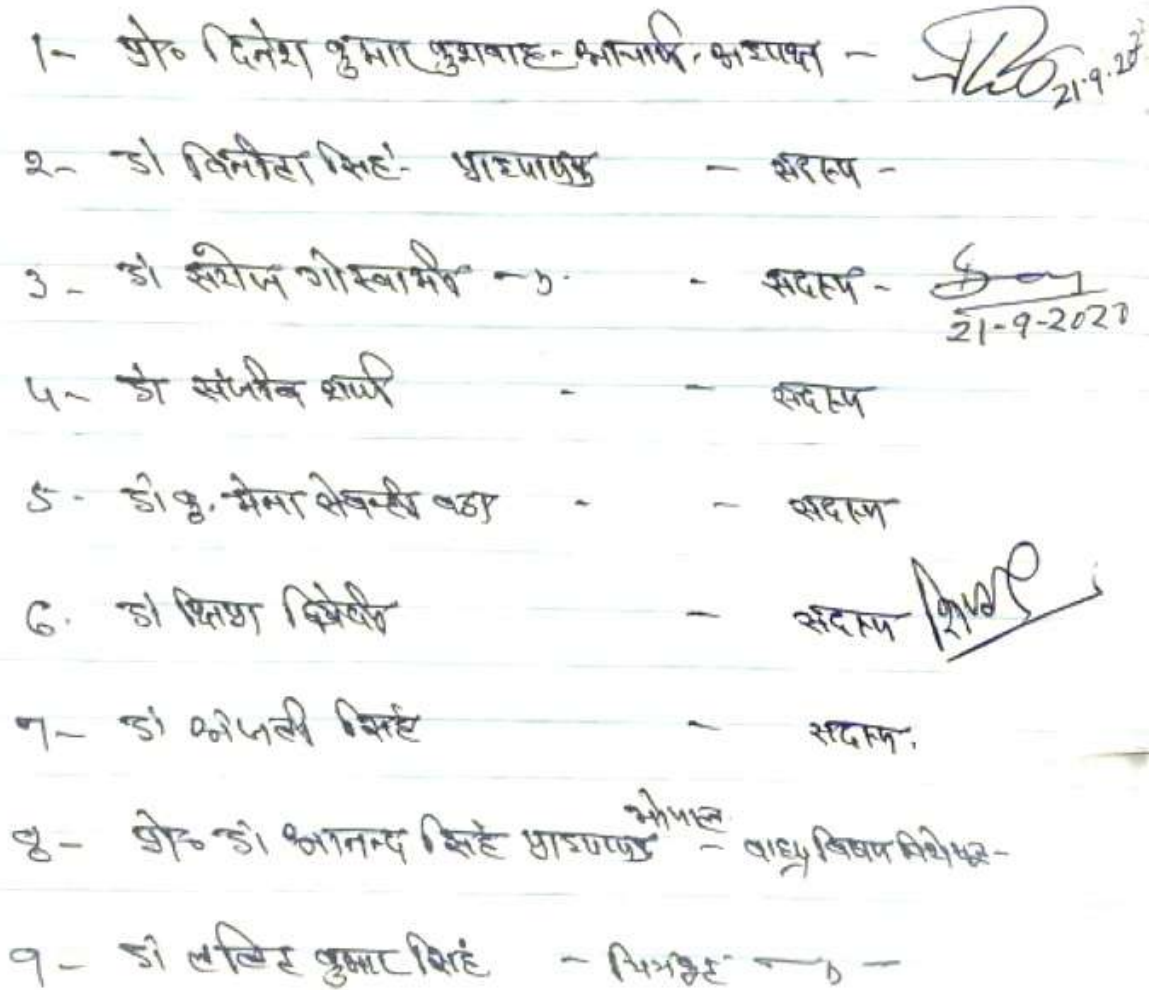 1- प्रो० दिनेश कुमार कुशवाह - आचार्य - अध्यक्ष - 21.9.20
2- डॉ विनीता सिंह - प्राध्यापक - सदस्य -
3- डॉ सरोज गोस्वामी - - सदस्य - 21-9-2020
4- डॉ संजीव शर्मा - - सदस्य
5- डॉ कु. - - सदस्य
6. डॉ द्विवेदी - सदस्य
7- डॉ अंजली सिंह - सदस्य.
8- प्रो० डॉ आनन्द सिंह प्राध्यापक भोपाल - बाह्य विषय विशेषज्ञ -
9- डॉ ललित कुमार सिंह - चित्रकूट -